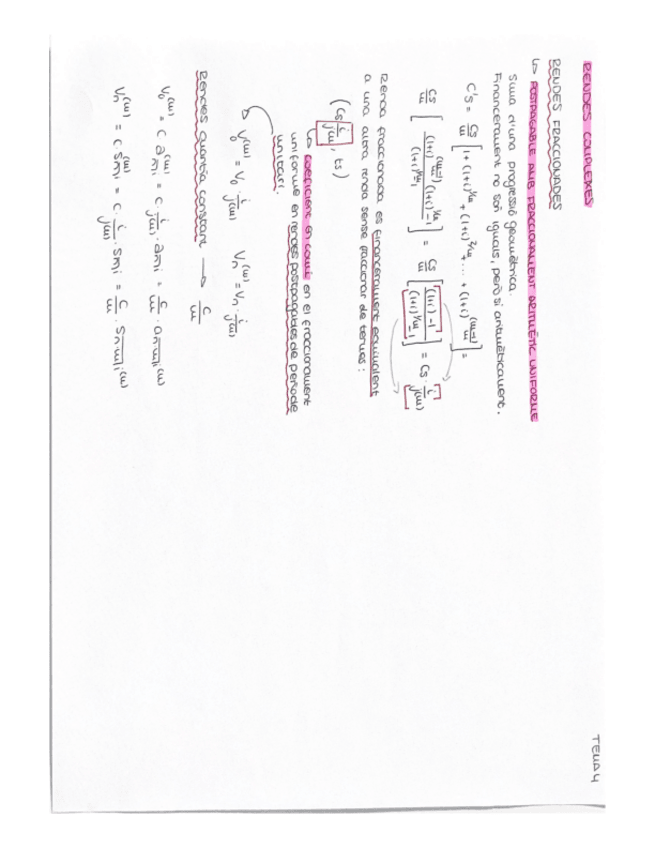 TEMA 4
RENDES COMPLEXES
RENDES FRACCIONADES
↳ POSTPAGABLE AMB FRACCIONAMENT ARITMÈTIC UNIFORME
Suma d'una progressió geomètrica.
Financerament no són iguals, però si aritmèticament.
C's = Cs/m [1 + (1+i)^(1/m) + (1+i)^(2/m) + ... + (1+i)^((m-1)/m)] =
Cs/m [((1+i)^((m-1)/m) (1+i)^(1/m) - 1)/((1+i)^(1/m) - 1)] = Cs/m [((1+i) - 1)/((1+i)^(1/m) - 1)] = Cs · i/j(m)
Renda fraccionada es financerament equivalent
a una altra renda sense fraccionar de termes:
(Cs i/j(m), ts)
↳ coeficient en comú en el fraccionament
uniforme en rendes postpagades de període
unitari.
↳ V₀^(m) = V₀ · i/j(m) Vn^(m) = Vn · i/j(m)
Rendes quantia constant → C/m
V₀^(m) = C an¬i^(m) = C · i/j(m) · an¬i = C/m · an·m¬i^(m)
Vn^(m) = C Sn¬i^(m) = C · i/j(m) · Sn¬i = C/m · Sn·m¬i^(m)